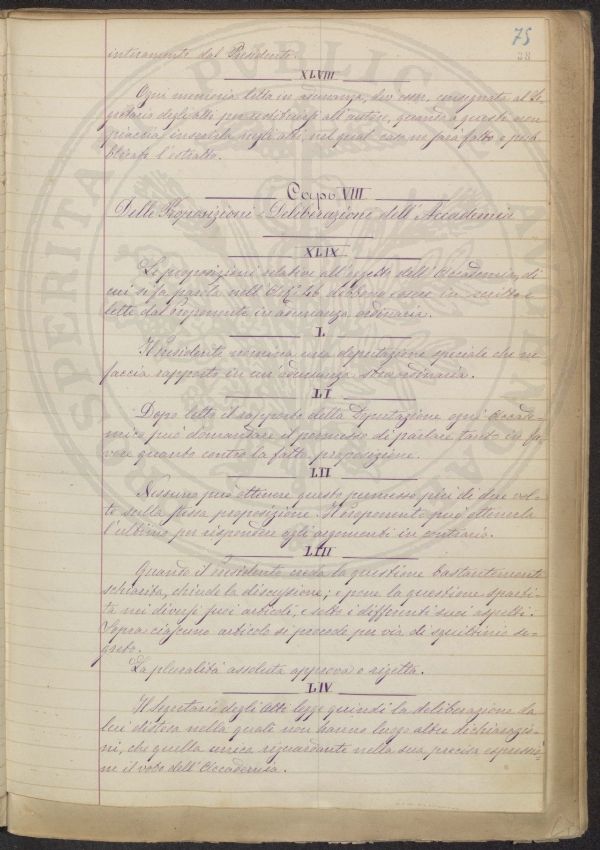 75
38
interamente dal Presidente.
XLVIII
Ogni memoria letta in adunanza, dev'esser consegnata al Se-
gretario degli Atti per restituirsi all'autore, quando a questo non
piaccia inserirla negli atti, nel qual caso ne sarà fatto e pub-
blicato l'estratto.
Capo VIII
Delle Proposizioni e Deliberazione dell'Accademia
XLIX
Le proposizioni relative all'oggetto dell'Accademia, di
cui si fa parola nell'Art. 46 debbono essere in scritto e
lette dal proponente in adunanza ordinaria.
L
Il Presidente nomina una deputazione speciale che ne
faccia rapporto in un'adunanza straordinaria.
LI
Dopo letto il rapporto della Deputazione ogni Accade-
mico può domandare il permesso di parlare tanto in fa-
vore quanto contro la fatta proposizione.
LII
Nessuno può ottenere questo permesso più di due vol-
te sulla stessa proposizione. Il proponente può ottenerla
l'ultimo per rispondere agli argomenti in contrario.
LIII
Quando il Presidente creda la questione bastantemente
schiarita, chiude la discussione; e pone la questione sparti-
ta nei diversi suoi articoli, e sotto i differenti suoi aspetti.
Sopra ciascuno articolo si procede per via di squittinio se-
greto.
La pluralità assoluta approva o rigetta.
LIV
Il Segretario degli Atti legge quindi la deliberazione da
lui distesa nella quale non hanno luogo altre dichiarazio-
ni, che quella unica riguardante nella sua precisa espressio-
ne il voto dell'Accademia.
PROSPERITATI PUBLICAE AUGENDAE